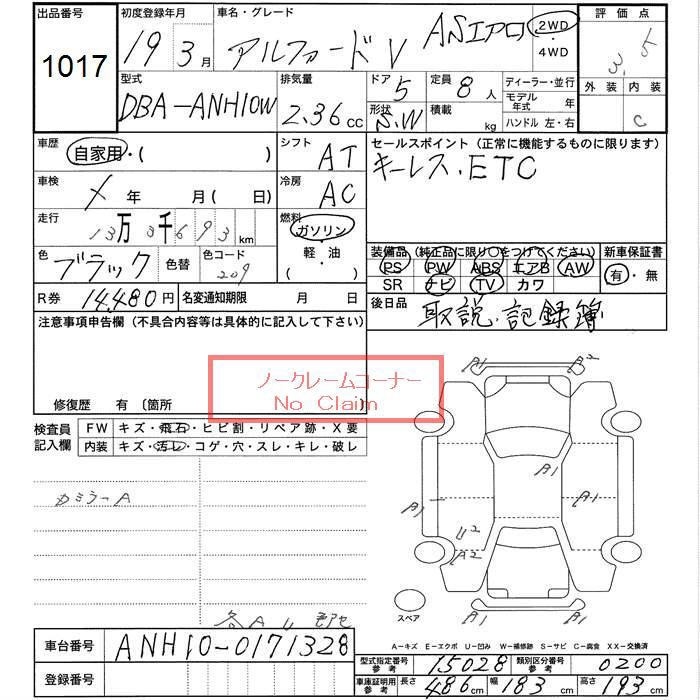 出品番号 初度登録年月 車名・グレード 評価点
1017 19 3月 アルファード V ASエアロ 2WD 4WD 3.5
外装 内装 C
型式 排気量 ドア 定員 ディーラー・並行
DBA-ANH10W 2.36cc 5 8人 モデル年式 年
形状 S.W 積載 kg ハンドル 左・右
車歴 自家用・( ) シフト AT セールスポイント(正常に機能するものに限ります)
キーレス、ETC
車検 × 年 月 ( 日) 冷房 AC
走行 13万 3千 6 9 3 km 燃料 ガソリン・軽・油・( )
色 ブラック 色替 色コード 209
装備品(純正品に限り○をつけてください) 新車保証書
PS PW ABS エアB AW 有・無
SR ナビ TV カワ
R券 14,480円 名変通知期限 月 日 後日品 取説、記録簿
注意事項申告欄(不具合内容等は具体的に記入して下さい)
ノークレームコーナー
No Claim
修復歴 有 〔箇所 〕
検査員記入欄 FW キズ・飛石・ヒビ割・リペア跡・X要
内装 キズ・汚レ・コゲ・穴・スレ・キレ・破レ
カミラーA
A1 A2
A1
A1 A1
U2
A2
スペア
各A U
A-キズ E-エクボ U-凹み W-補修跡 S-サビ C-腐食 XX-交換済
車台番号 ANH10-0171328
型式指定番号 参考 15028 類別区分番号 参考 0200
登録番号
車庫証明用 参考 長さ 486cm 幅 183cm 高さ 193cm